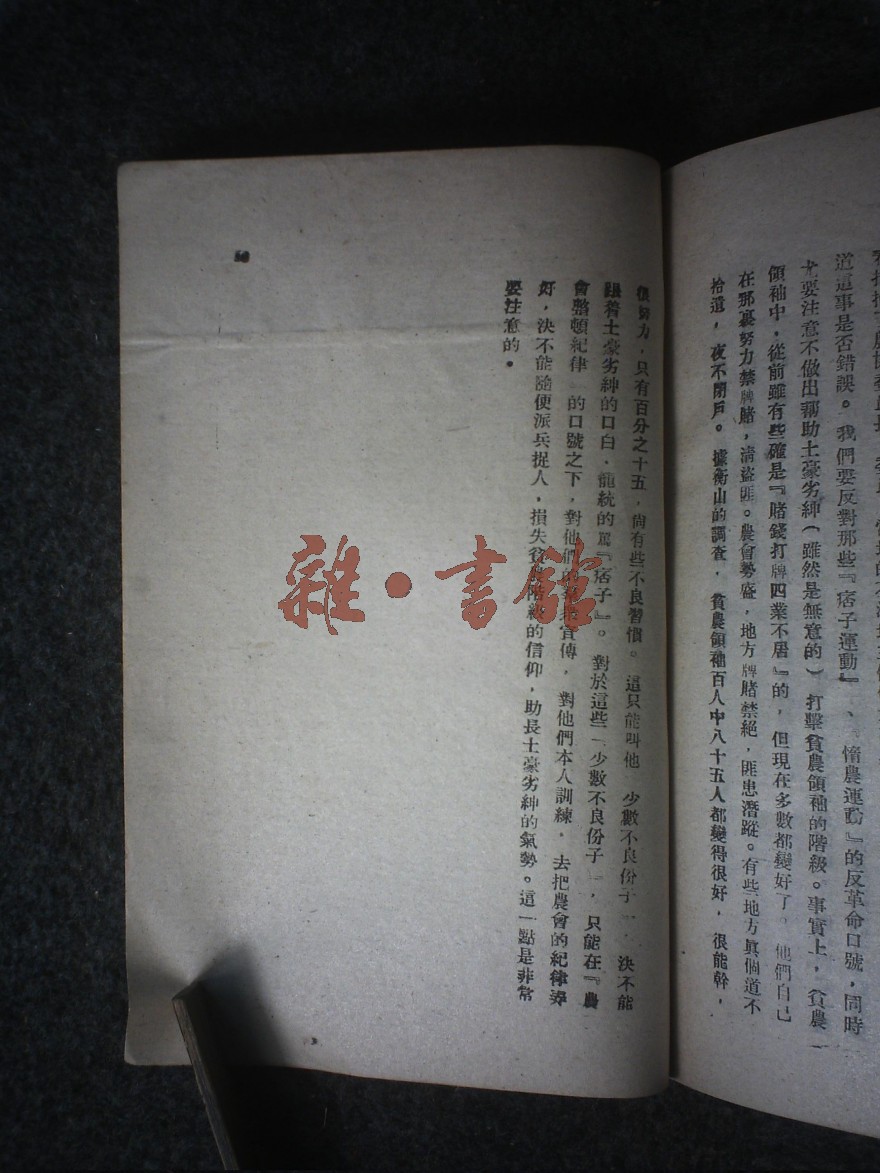 道這事是否錯誤。我們要反對那些『痞子運動』、『惰農運動』的反革命口號，同時
尤要注意不做出幫助土豪劣紳（雖然是無意的）打擊貧農領袖的階級。事實上，貧農
領袖中，從前雖有些確是『賭錢打牌四業不居』的，但現在多數都變好了，他們自己
在那裏努力禁牌賭，淸盜匪。農會勢盛，地方牌賭禁絕，匪患潛蹤。有些地方眞個道不
拾遺，夜不閉戶。據衡山的調查，貧農領袖百人中八十五人都變得很好，很能幹，
很努力，只有百分之十五，尙有些不良習慣。這只能叫他 少數不良份子 ，決不能
跟着土豪劣紳的口白，籠統的罵『痞子』。對於這些 少數不良份子 ，只能在『農
會整頓紀律 的口號之下，對他們 宣傳，對他們本人訓練，去把農會的紀律弄
好，決不能隨便派兵捉人，損失貧農階級的信仰，助長土豪劣紳的氣勢。這一點是非常
要注意的。
雜·書館